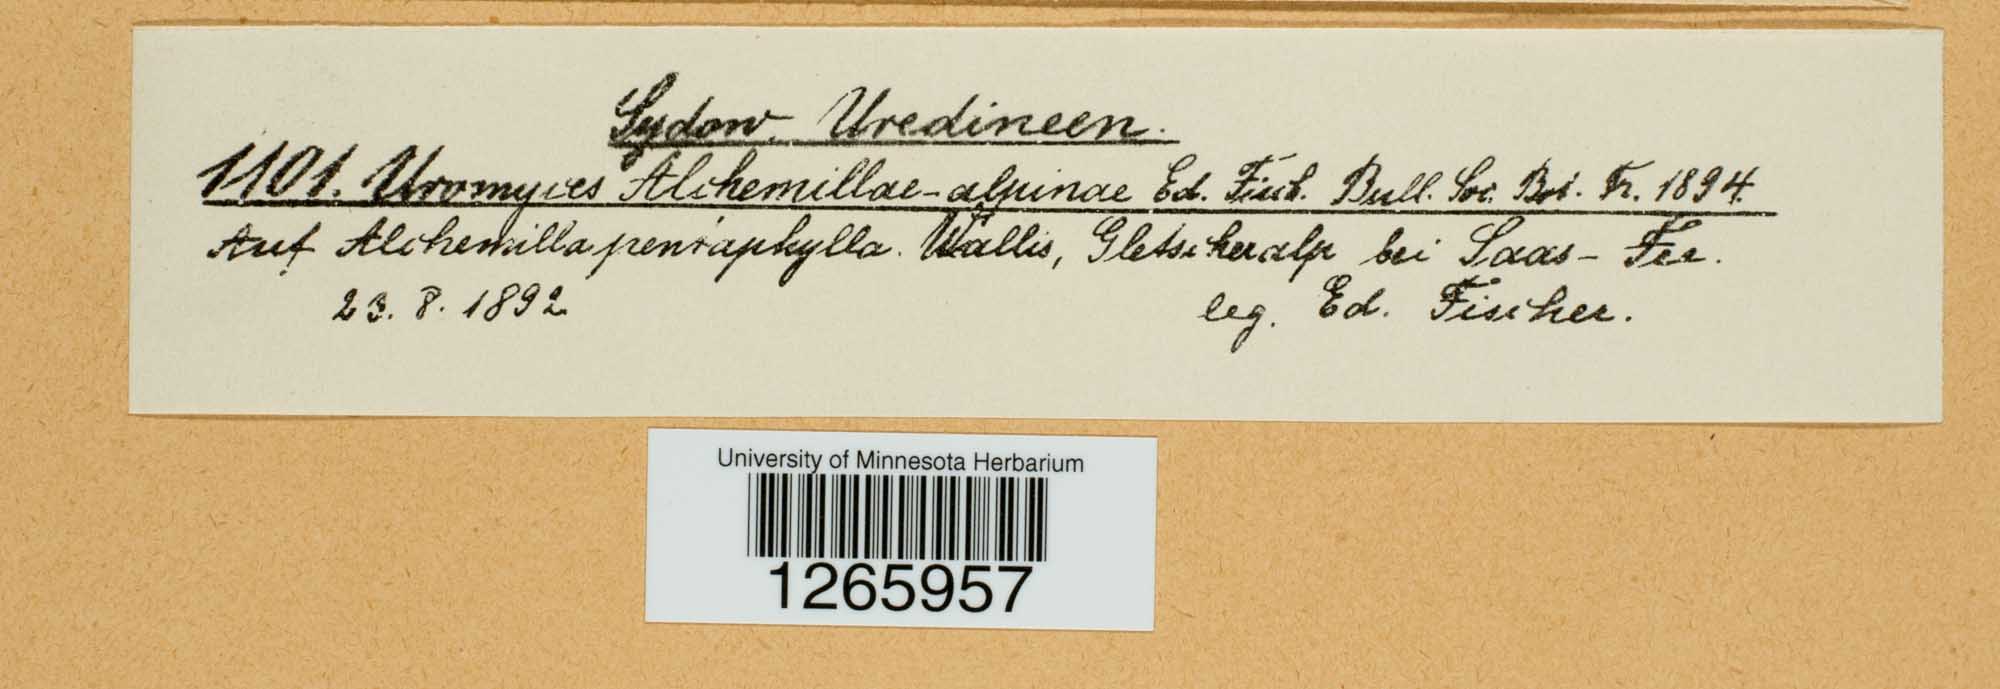 Sydow. Uredineen.
1101. Uromyces Alchemillae-alpinae Ed. Fisch. Bull. Soc. Bot. Fr. 1894.
Auf Alchemilla pentaphylla. Wallis, Gletscheralp bei Saas-Fee.
23. 8. 1892 leg. Ed. Fischer.
University of Minnesota Herbarium
1265957